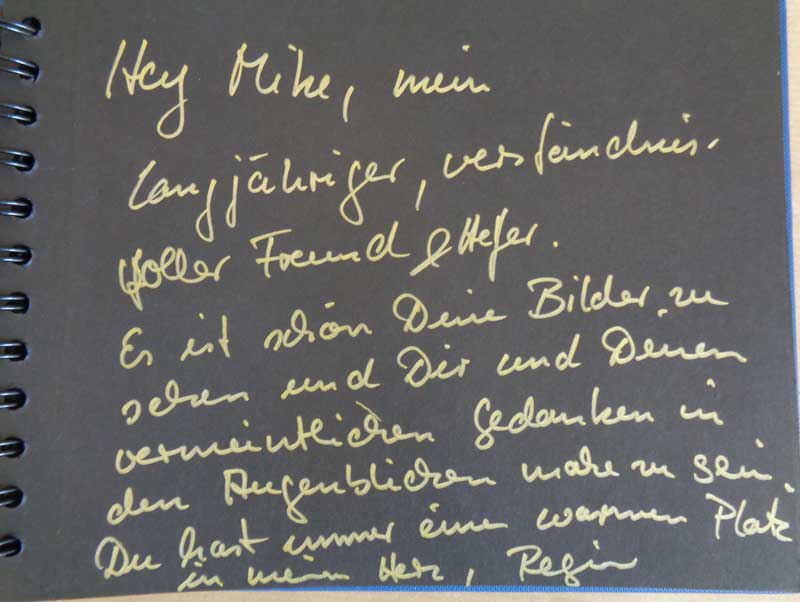 Hey Mike, mein
langjähriger, verständnis-
voller Freund & Helfer.
Es ist schön Deine Bilder zu
sehen und Dir und Deinen
vermeintlichen Gedanken in
den Augenblicken nahe zu sein.
Du hast immer einen warmen Platz
in meinem Herz,